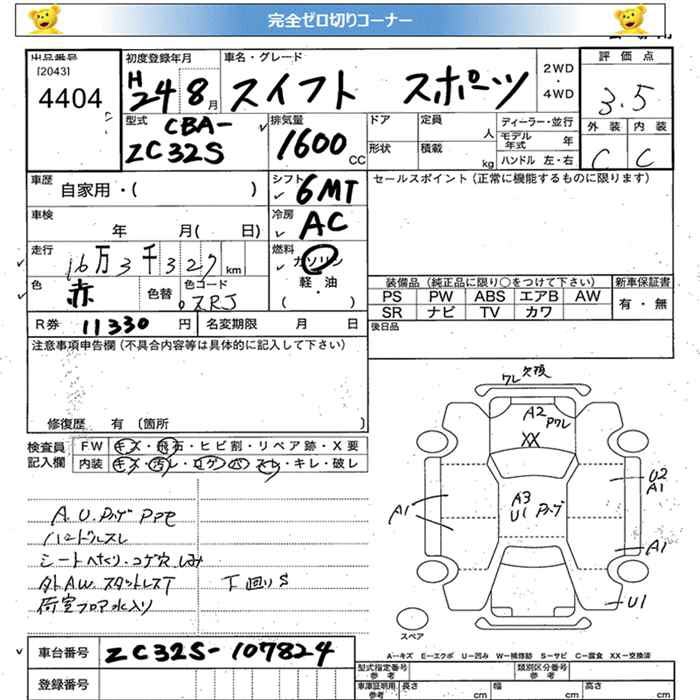 完全ゼロ切りコーナー
出品番号 初度登録年月 車名・グレード 評価点
[2043]
4404
H 24 8月 スイフト スポーツ 2WD・4WD 3.5
型式 CBA-ZC32S
排気量 1600 CC
ドア 定員 人 ディーラー・並行
形状 積載 kg モデル年式 年
ハンドル 左・右
外装 内装
C C
車歴 自家用・( )
シフト 6MT
セールスポイント(正常に機能するものに限ります)
車検 年 月( 日)
冷房 AC
走行 16万3千327 km
燃料 ガソリン 軽・油 ( )
色 赤 色替 色コード ZRJ
装備品(純正品に限り○をつけて下さい) 新車保証書
PS PW ABS エアB AW 有・無
SR ナビ TV カワ
R券 11330 円 名変期限 月 日
後日品
注意事項申告欄(不具合内容等は具体的に記入して下さい)
修復歴 有 〔箇所 〕
検査員記入欄
FW キズ・飛石・ヒビ割・リペア跡・X要
内装 キズ・汚レ・コゲ・穴・スレ・キレ・破レ
ワレ 欠損
A2 Pワレ
XX
A3
U1
U2
A1
A1
A1
U1
A.U.
ハンドルスレ
シートへたり・コゲ穴しみ
外AW スタットレスT
下回りS
荷室フロア水入り
スペア
A…キズ E…エクボ U…凹み W…補修跡 S…サビ C…腐食 XX…交換済
車台番号 ZC32S-107824
登録番号
型式指定番号 参考 類別区分番号 参考
車庫証明用 参考 長さ cm 幅 cm 高さ cm